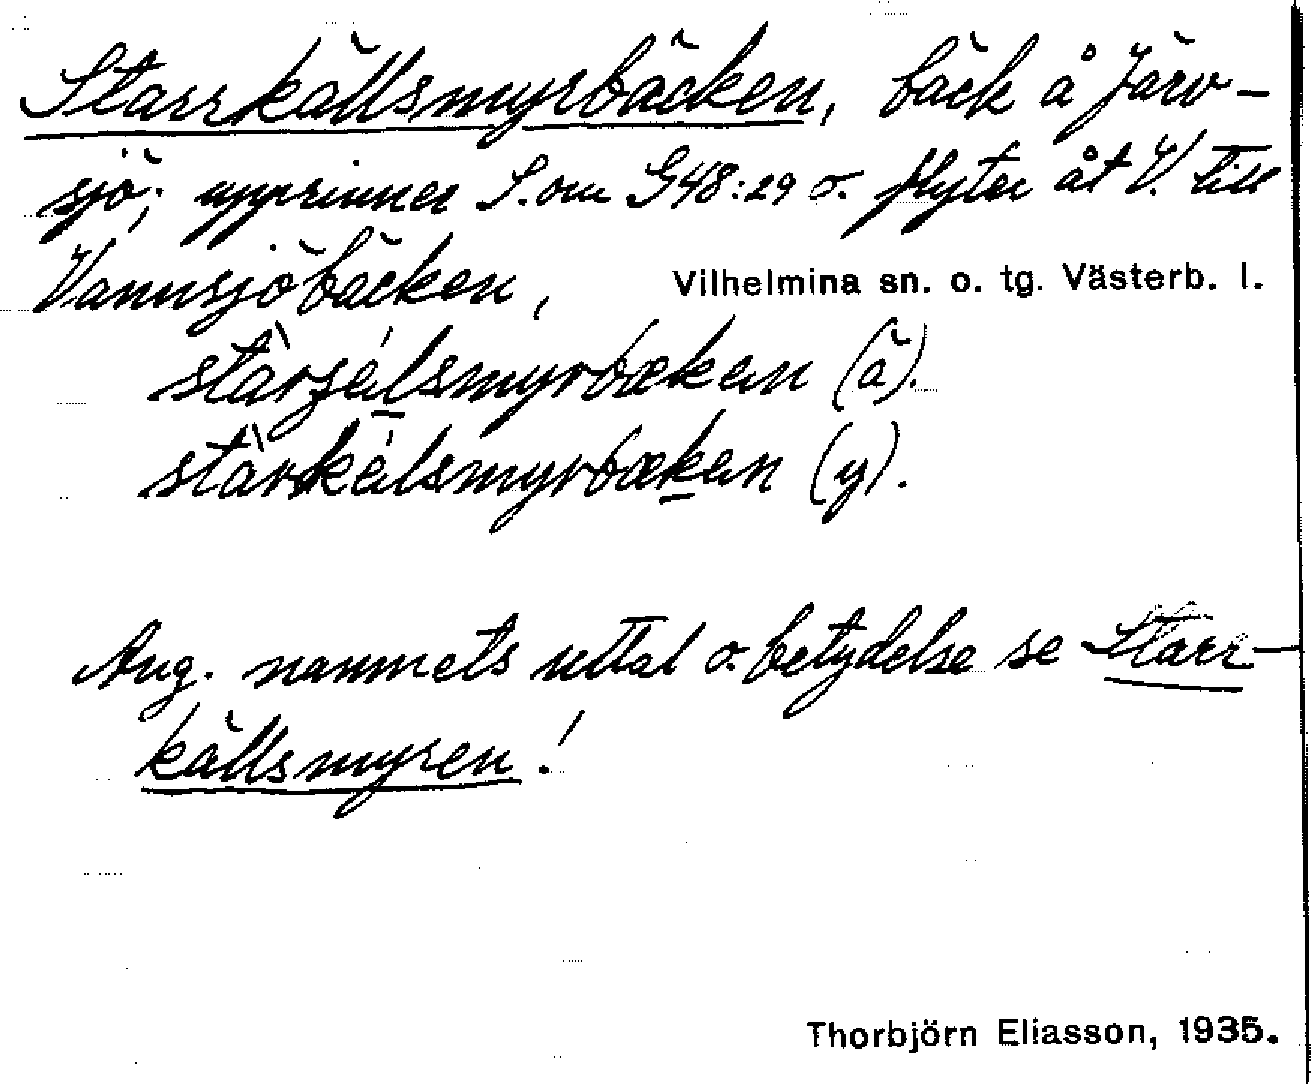 Starrkällsmyrbäcken, bäck å Järv-
sjö; upprinner S. om G48:29 o. flyter åt V. till
Vannsjöbäcken, Vilhelmina sn. o. tg. Västerb. l.
(ä).
(y).
Ang. namnets uttal o. betydelse se Starr-
källsmyren!
Thorbjörn Eliasson, 1935.